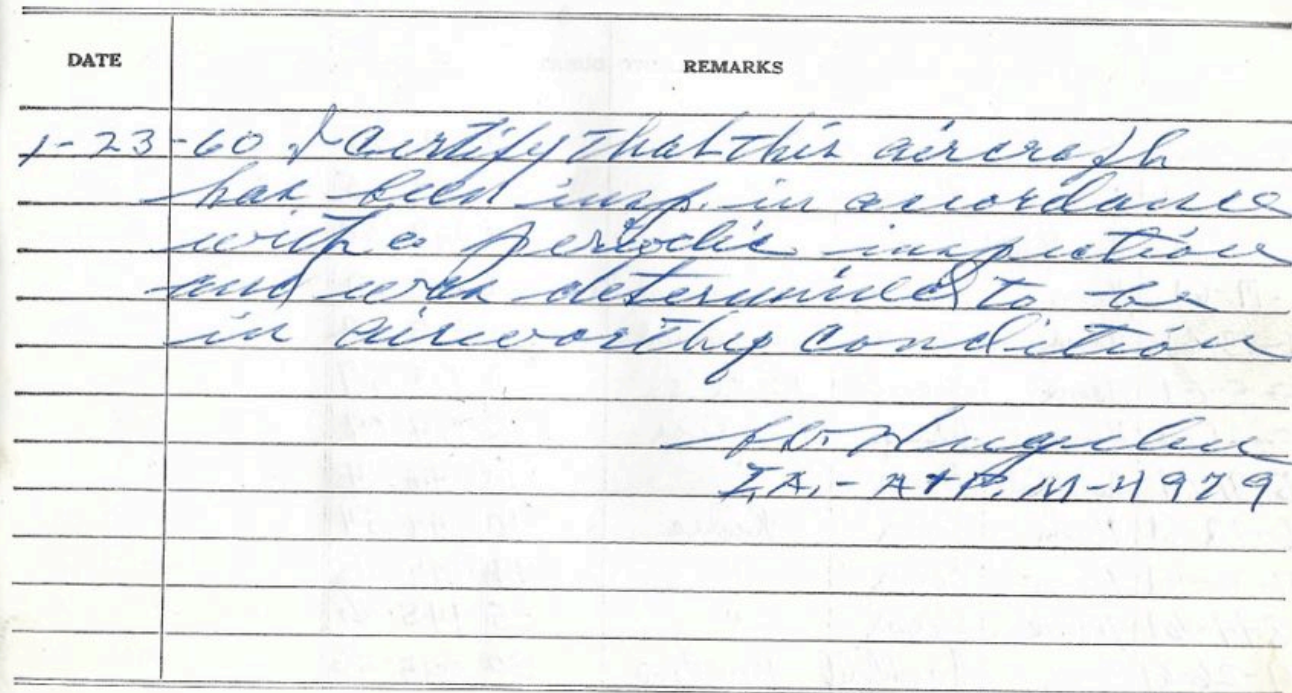 DATE REMARKS
1-23-60 I certify that this aircraft
has been insp. in accordance
with a periodic inspection
and was determined to be
in airworthy condition
I.A. - A+P. M-4979